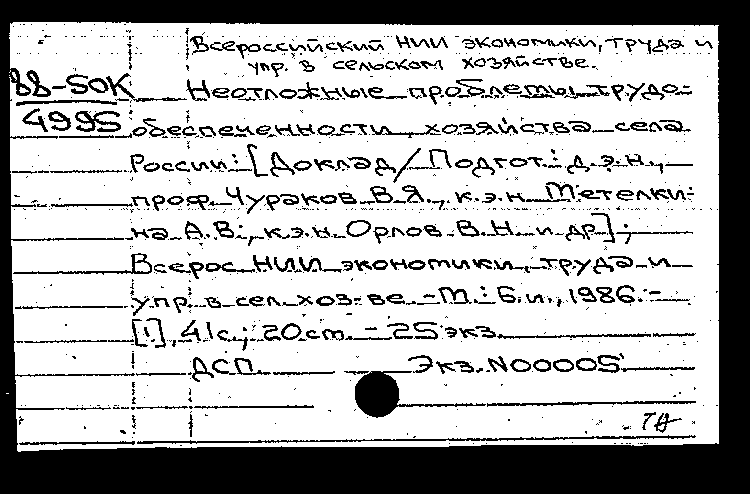 Всероссийский НИИ экономики, труда и
упр. в сельском хозяйстве.
88-50К Неотложные проблемы трудо-
4995 обеспеченности хозяйства села
России: [Доклад / Подгот.: д.э.н.,
проф. Чураков В.Я., к.э.н. Метелки-
на А.В., к.э.н. Орлов В.Н. и др];
Всерос НИИ экономики, труда и
упр. в сел. хоз-ве. - М.: Б.и., 1986. -
[1], 41с.; 20ст. - 25 экз.
ДСП. Экз. N00005